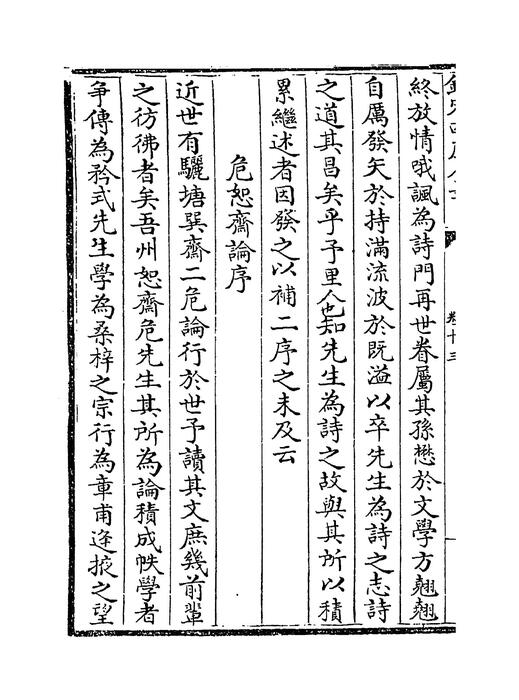 卷十三
終放情哦諷為詩門再世眷屬其孫懋於文學方翹翹
自厲發矢於持滿流波於既溢以卒先生為詩之志詩
之道其昌矣乎予里人也知先生為詩之故與其所以積
累繼述者因發之以補二序之未及云
危恕齋論序
近世有驪塘巽齋二危論行於世予讀其文庶幾前輩
之彷彿者矣吾州恕齋危先生其所為論積成帙學者
爭傳為矜式先生學為桑梓之宗行為章甫逢掖之望